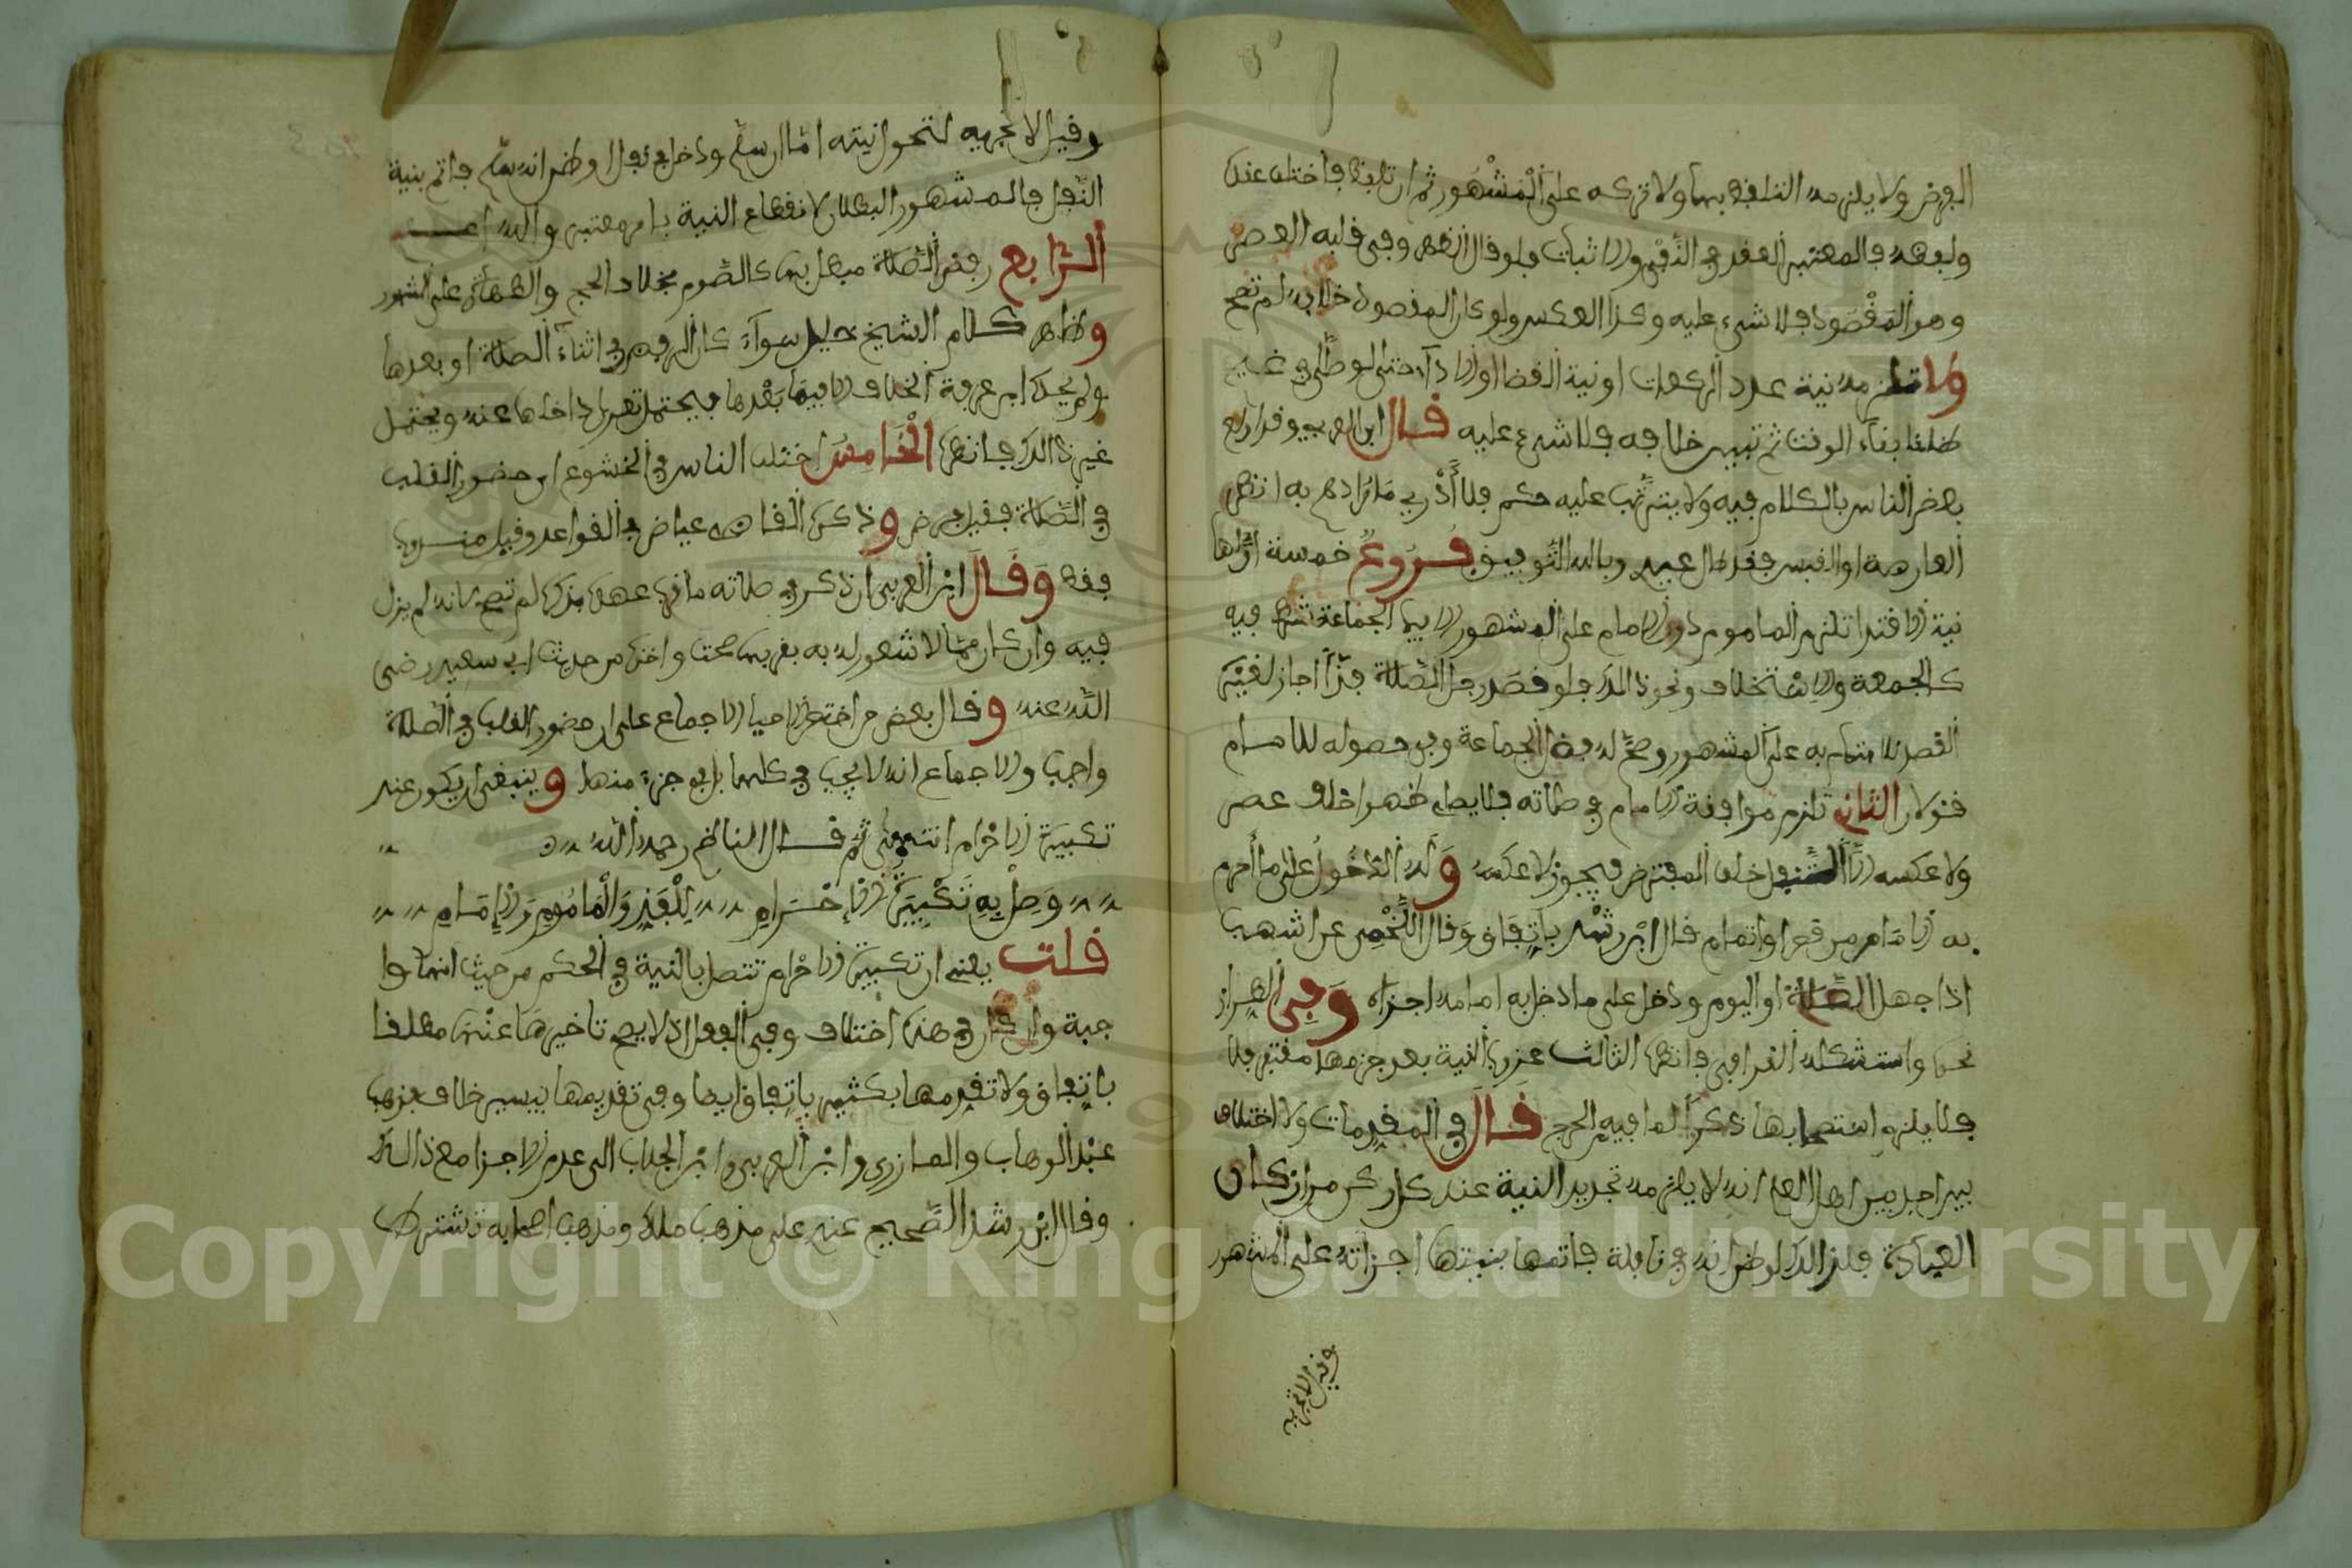 الفرض ولا يلزمه التلفظ بها ولا تركه على المشهور ثم ان تلفظ فاختلف عنده
ولفظه فالمعتبر العقد في النفي والاثبات فلو قال الظهر وفي قلبه العصر
وهو المقصود فلا شيء عليه وكذا العكس ولو كان المقصود خلافه لم تصح
ولا تلزمه نية عدد الركعات او نية القضا او الاداء حتى لو صلى في غيم
ظانا بقاء الوقت ثم تبين خلافه فلا شيء عليه قال ابن العربي وقد اولع
بعض الناس بالكلام فيه ولا يترتب عليه حكم فلا أدري ما مرادهم به انظر
العارضة او القبس فقد طال عهدي وبالله التوفيق فروع خمسة اولها
نية الاقتدا تلزم الماموم دون الامام على المشهور الا فيما الجماعة شرط فيه
كالجمعة والاستخلاف ونحو ذالك فلو قصد رجل الصلاة فذا جاز لغيره
القصد للايتمام به على المشهور وصح له فضل الجماعة وفي حصوله للامام
قولان الثاني تلزم موافقة الامام في صلاته فلا يصلي ظهرا خلف عصر
ولا عكسه الا المتنفل خلف المفترض فيجوز لا عكسه وله الدخول على ما أحرم
به الامام من قصر او اتمام قال ابن رشد باتفاق وقال اللخمي عن اشهب
اذا جهل الصلاة او اليوم ودخل على ما دخل به امامه اجزاه وفي الطراز
نحوه واستشكله القرافي فانظره الثالث عزوب النية بعد جزمها مغتفر فلا
فلا يلزم استصحابها ذكرا لما فيه الحرج قال في المقدمات ولا اختلاف
بين احد من اهل العلم انه لا يلزمه تجديد النية عند كل ركن من اركان
العبادة فلذالك لو ظن انه في نافلة فاتمها بنيتها اجزاته على المشهور
وقيل لا تجزيه
وقيل لا تجزيه لتحول نيته اما ان سلم ودخل في نفل او ظن انه سلم فاتم بنية
النفل فالمشهور البطلان لانقطاع النية بامر معتبر والله اعلم
الرابع رفض الصلاة مبطل لها كالصوم بخلاف الحج والطهارة على المشهور
وظاهر كلام الشيخ خليل سواء كان الرفض في اثناء الصلاة او بعدها
ولم يحك ابن عرفة الخلاف الا فيما بعدها فيحتمل تعدي داخلها عنده ويحتمل
غير ذالك فانظره الخامس اختلف الناس في الخشوع اي حضور القلب
في الصلاة فقيل فرض وذكره القاضي عياض في القواعد وقيل مندوب
فقط وقال ابن العربي ان ذكر في صلاته ما قرب عهده بذكره لم تصح لانه لم يزل
فيه وان كان مما لا شعور له به بقرب صحت واخذه من حديث ابي سعيد رضي
الله عنه وقال بعض من اختصر الاحيا الاجماع على ان حضور القلب في الصلاة
واجب والاجماع انه لا يجب في كلها بل في جزء منها وينبغي ان يكون عند
تكبيرة الاحرام انتهى ثم قال الناظم رحمه الله
وصل به تكبيرة الاحرام للفذ والماموم والإمام
قلت يعني ان تكبيرة الاحرام تتصل بالنية في الحكم من حيث انها وا
جبة وان كان في هذه اختلاف وفي الفعل اذ لا يصح تاخيرها عنه مطلقا
باتفاق ولا تقدمها بكثير باتفاق ايضا وفي تقديمها بيسير خلاف فذهب
عبد الوهاب والمازري وابن العربي وابن الجلاب الى عدم الاجزا مع ذالك
وقال ابن رشد الصحيح عندي على مذهب ملك ومذهب اصحابه تشترط
Copyright © King Saud University